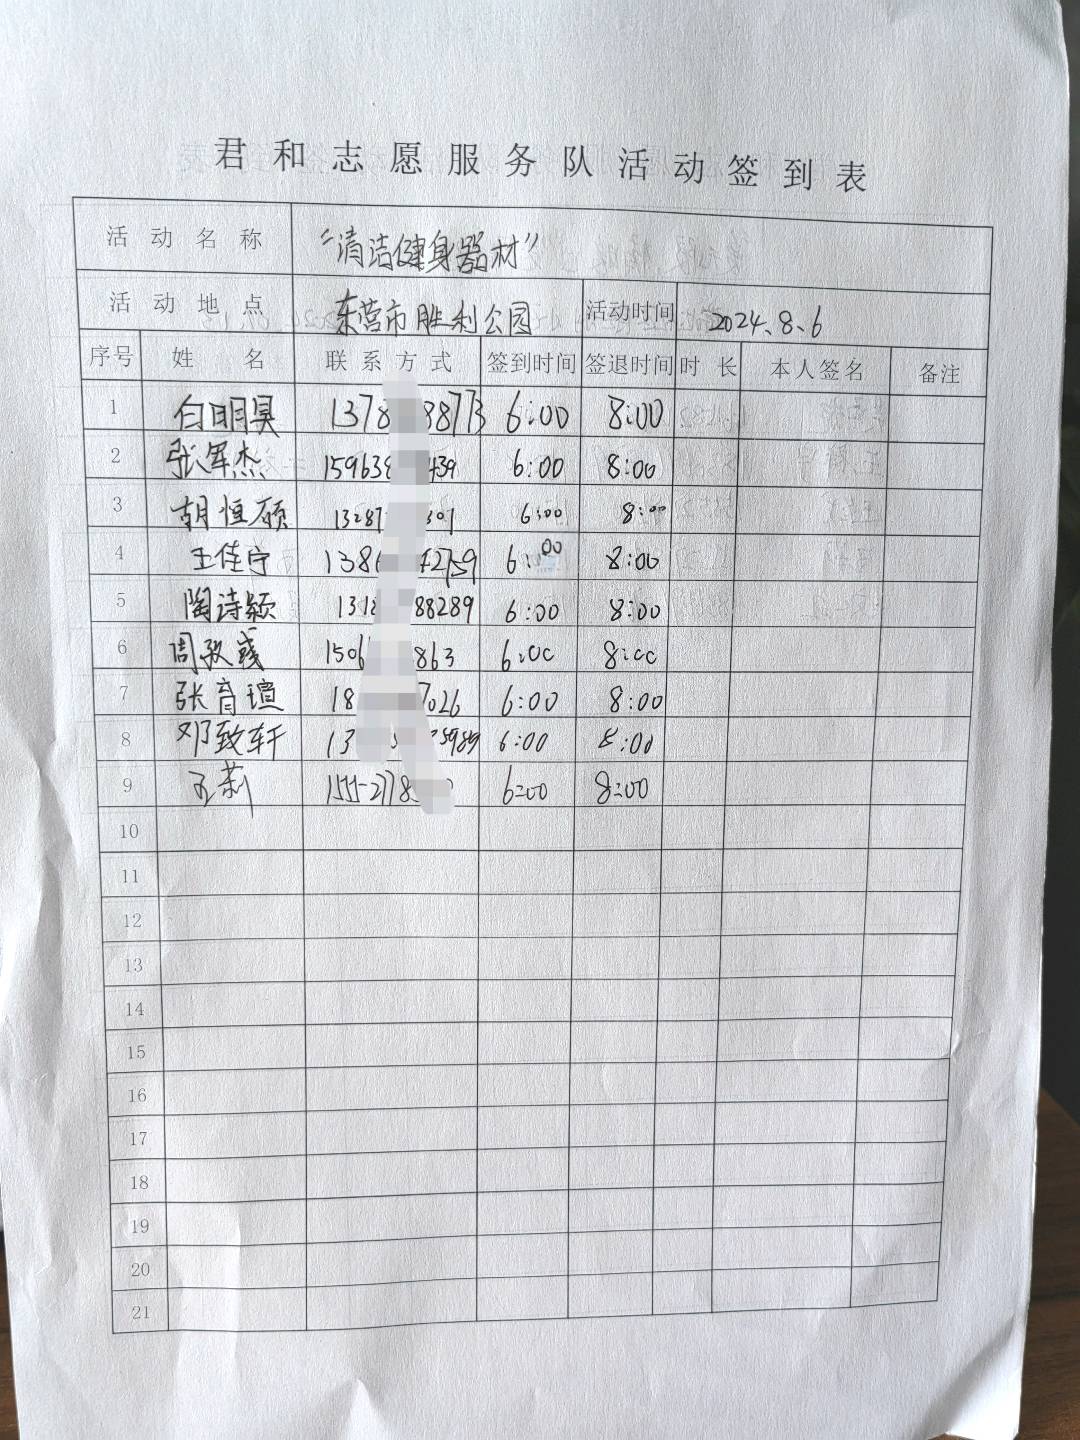 君和志愿服务队活动签到表
活动名称 “清洁健身器材”
活动地点 东营市胜利公园 活动时间 2024.8.6
序号 姓名 联系方式 签到时间 签退时间 时长 本人签名 备注
1 白明昊 1378 88773 6:00 8:00
2 张军杰 159638 439 6:00 8:00
3 胡恒硕 13287 307 6:00 8:00
4 王佳宁 1386 42759 6:00 8:00
5 陶诗颖 1318 88289 6:00 8:00
6 周玫彧 1506 863 6:00 8:00
7 张育瑄 18 7026 6:00 8:00
8 邓致轩 13 5989 6:00 8:00
9 王莉 155-278 6:00 8:00
10
11
12
13
14
15
16
17
18
19
20
21